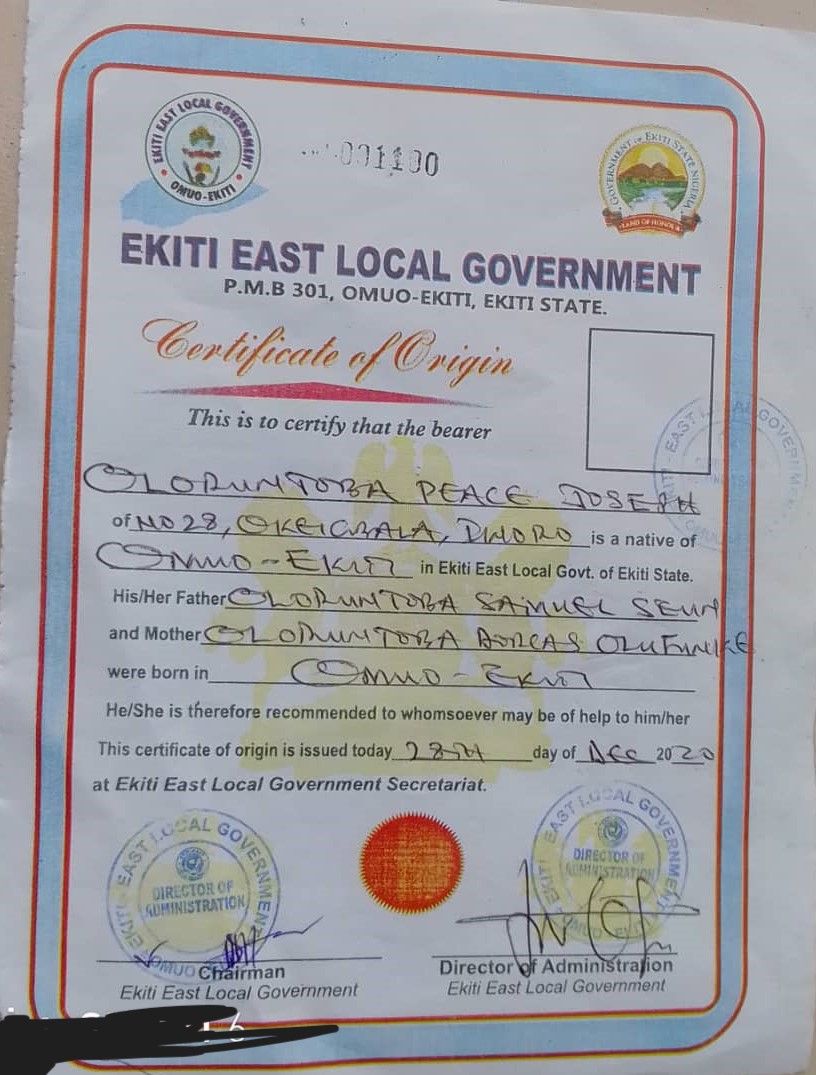 EKITI EAST LOCAL GOVERNMENT
OMUO-EKITI
001100
GOVERNMENT OF EKITI STATE NIGERIA
LAND OF HONOUR
EKITI EAST LOCAL GOVERNMENT
P.M.B 301, OMUO-EKITI, EKITI STATE.
Certificate of Origin
This is to certify that the bearer
OLORUNTOBA PEACE JOSEPH
of NO 28, is a native of
OMUO-EKITI in Ekiti East Local Govt. of Ekiti State.
His/Her Father OLORUNTOBA SAMUEL SEUN
and Mother OLORUNTOBA DORCAS OLUFUNIKE
were born in OMUO-EKITI
He/She is therefore recommended to whomsoever may be of help to him/her
This certificate of origin is issued today 28TH day of DEC 2020
at Ekiti East Local Government Secretariat.
EKITI EAST LOCAL GOVERNMENT
DIRECTOR OF
ADMINISTRATION
OMUO EKITI
EKITI EAST LOCAL GOVERNMENT
DIRECTOR OF
ADMINISTRATION
OMUO EKITI
Chairman
Ekiti East Local Government
Director of Administration
Ekiti East Local Government